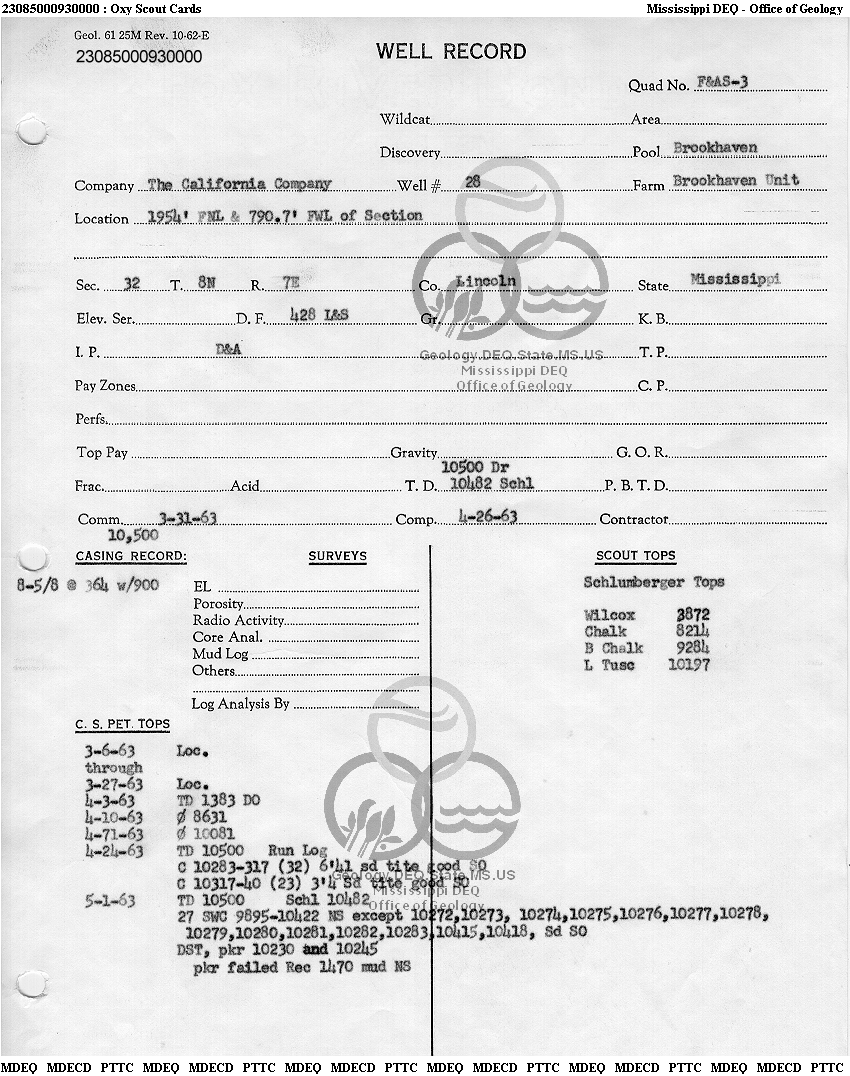 23085000930000 : Oxy Scout Cards Mississippi DEQ - Office of Geology
Geol. 61 25M Rev. 10-62-E
23085000930000
WELL RECORD
Quad No. F&AS-3
Wildcat Area
Discovery Pool Brookhaven
Company The California Company Well # 28 Farm Brookhaven Unit
Location 1954' FNL & 790.7' FWL of Section
Sec. 32 T. 8N R. 7E Co. Lincoln State Mississippi
Elev. Ser. D. F. 428 L&S Gr. K. B.
I. P. D&A T. P.
Geology.DEQ.State.MS.US
Mississippi DEQ
Office of Geology
Pay Zones C. P.
Perfs.
Top Pay Gravity G. O. R.
10500 Dr
Frac. Acid T. D. 10482 Schl P. B. T. D.
Comm. 3-31-63 Comp. 4-26-63 Contractor
10,500
CASING RECORD: SURVEYS SCOUT TOPS
8-5/8 @ 364 w/900 EL Schlumberger Tops
Porosity
Radio Activity Wilcox 3872
Core Anal. Chalk 8214
Mud Log B Chalk 9284
Others L Tusc 10197
Log Analysis By
C. S. PET. TOPS
3-6-63 Loc.
through
3-27-63 Loc.
4-3-63 TD 1383 DO
4-10-63 Ø 8631
4-71-63 Ø 10081
4-24-63 TD 10500 Run Log
C 10283-317 (32) 6'41 sd tite good SO
C 10317-40 (23) 3'4 Sd tite good SO
Geology.DEQ.State.MS.US
Mississippi DEQ
Office of Geology
5-1-63 TD 10500 Schl 10482
27 SWC 9895-10422 NS except 10272,10273, 10274,10275,10276,10277,10278,
10279,10280,10281,10282,10283,10415,10418, Sd SO
DST, pkr 10230 and 10245
pkr failed Rec 1470 mud NS
MDEQ MDECD PTTC MDEQ MDECD PTTC MDEQ MDECD PTTC MDEQ MDECD PTTC MDEQ MDECD PTTC MDEQ MDECD PTTC